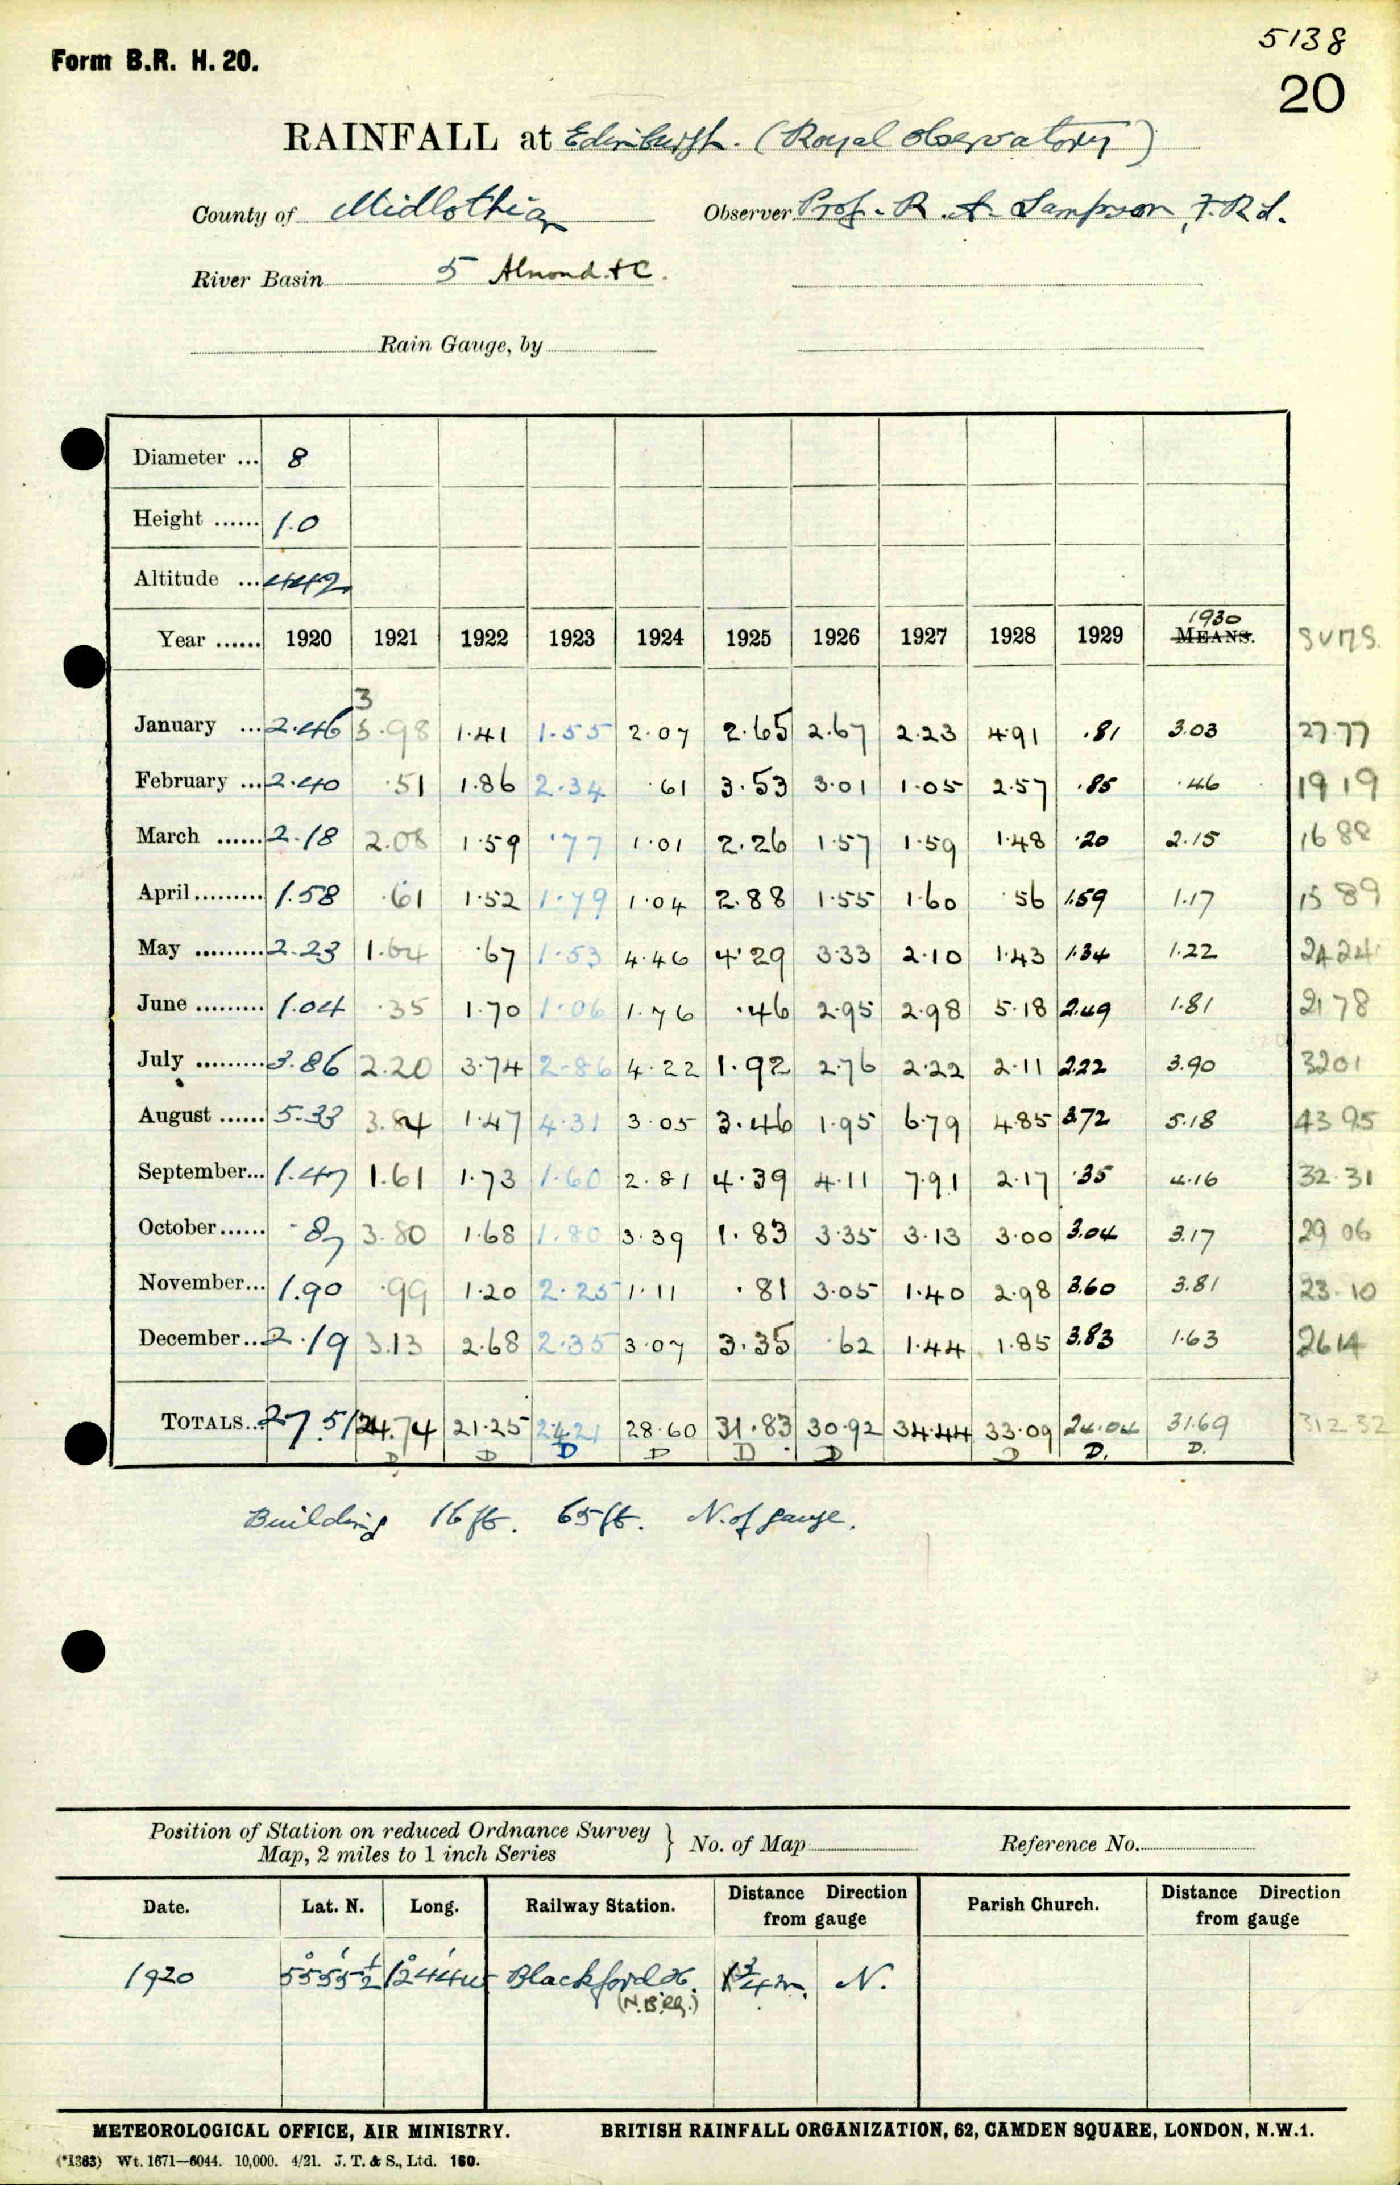 5138
Form B.R. H. 20.
20
RAINFALL at Edinburgh. (Royal Observatory)
County of Midlothian Observer Prof. R. A. Sampson, F.R.S.
River Basin 5 Almond &C.
Rain Gauge, by
Diameter ... 8
Height ...... 1.0
Altitude ... 442
1930
Year ...... 1920 1921 1922 1923 1924 1925 1926 1927 1928 1929 MEANS. SUMS.
3
January ... 2.46 3.98 1.41 1.55 2.07 2.65 2.67 2.23 4.91 .81 3.03 27.77
February ... 2.40 .51 1.86 2.34 .61 3.53 3.01 1.05 2.57 .85 .46 19 19
March ...... 2.18 2.08 1.59 .77 1.01 2.26 1.57 1.59 1.48 .20 2.15 16 88
April ......... 1.58 .61 1.52 1.79 1.04 2.88 1.55 1.60 .56 1.59 1.17 15 89
May ......... 2.23 1.64 .67 1.53 4.46 4.29 3.33 2.10 1.43 1.34 1.22 24 24
June ......... 1.04 .35 1.70 1.06 1.76 .46 2.95 2.98 5.18 2.49 1.81 21 78
July ......... 3.86 2.20 3.74 2.86 4.22 1.92 2.76 2.22 2.11 2.22 3.90 3201
August ...... 5.33 3.84 1.47 4.31 3.05 3.46 1.95 6.79 4.85 3.72 5.18 43 95
September... 1.47 1.61 1.73 1.60 2.81 4.39 4.11 7.91 2.17 .35 4.16 32.31
October ...... .87 3.80 1.68 1.80 3.39 1.83 3.35 3.13 3.00 3.04 3.17 29 06
November ... 1.90 .99 1.20 2.25 1.11 .81 3.05 1.40 2.98 3.60 3.81 23.10
December ... 2.19 3.13 2.68 2.35 3.07 3.35 .62 1.44 1.85 3.83 1.63 26 14
TOTALS... 27.51 24.74 21.25 24.21 28.60 31.83 30.92 34.44 33.09 24.04 31.69 312.32
D D D D D D D D. D.
Building 16 ft. 65 ft. N. of gauge.
Position of Station on reduced Ordnance Survey
Map, 2 miles to 1 inch Series } No. of Map Reference No.
Date. Lat. N. Long. Railway Station. Distance Direction from gauge Parish Church. Distance Direction from gauge
1920 55° 55' ½ 12° 44' W Blackford H. ¾ m. N.
METEOROLOGICAL OFFICE, AIR MINISTRY. BRITISH RAINFALL ORGANIZATION, 62, CAMDEN SQUARE, LONDON, N.W.1.
(*1363) Wt. 1671—6044. 10,000. 4/21. J. T. & S., Ltd. 160.